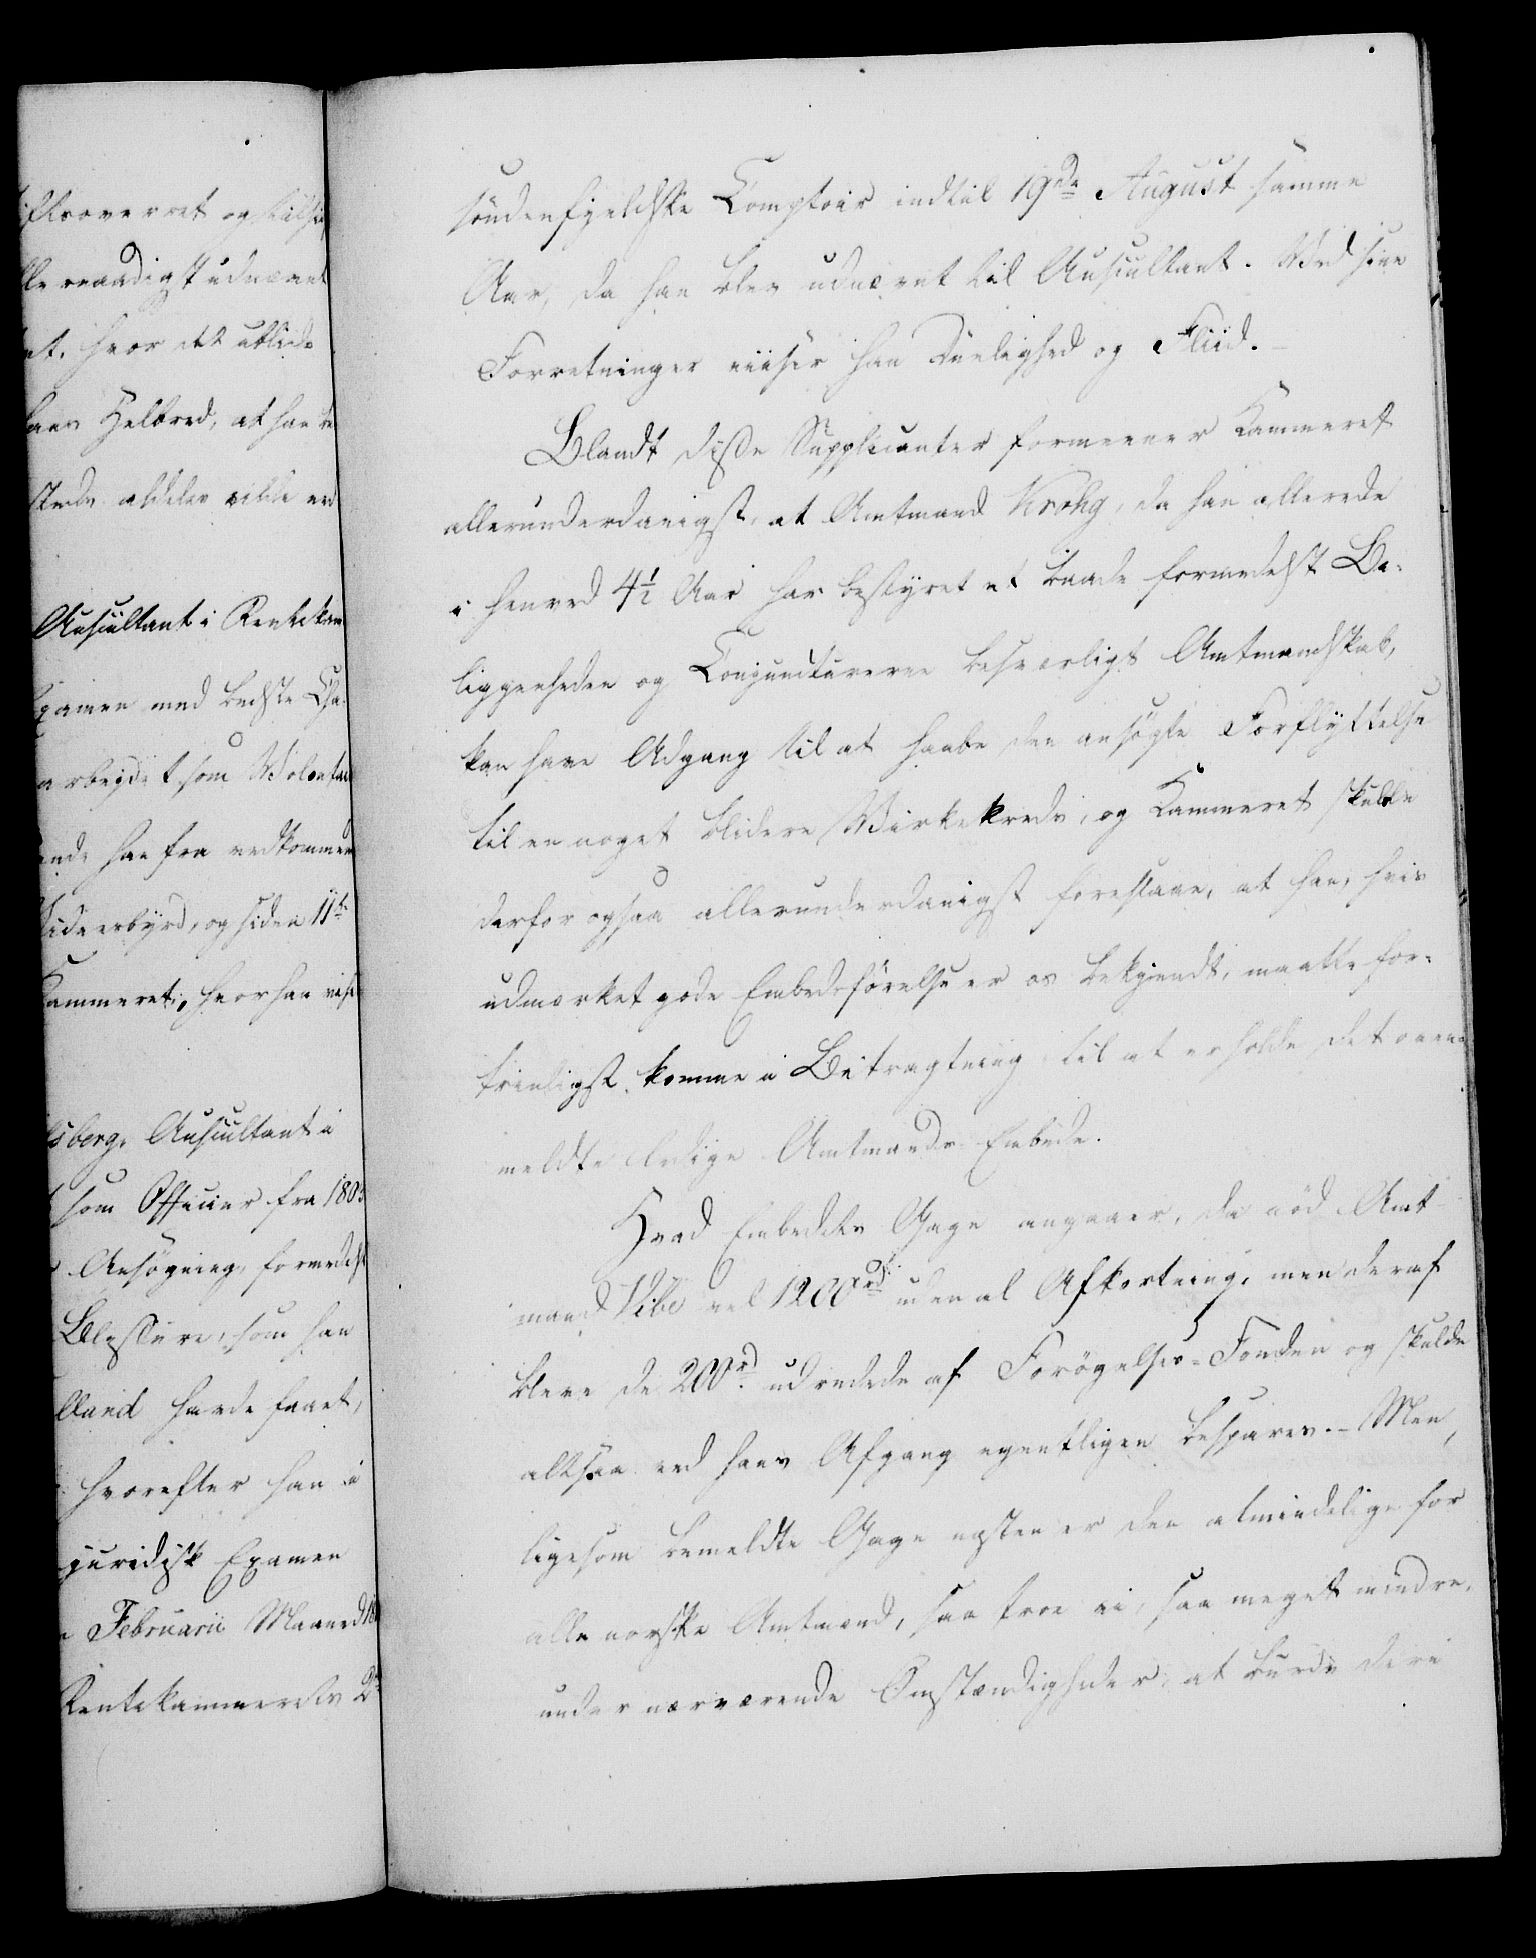 Floverret og tilsi
lle naadigst udnævnt
et, hvor det ublide
hans Helbred, at han
steds aldeles vilde
Auscultant i Rentekam
Examen med bedste Cha-
arbeidet som Volontai
ende han fra vedkommen
Vidnesbyrd, og siden 11te
Kammeret, hvor han vise
sberg, Auscultant i
som Officier fra 1803
Ansøgning, formedelst
Blessure, som han
lland havde faaet,
hvorefter han i
juridisk Examen
Februarii Maaned 18
Rentekammerets 2
søndenfjeldske Comptoir indtil 19de August samme
Aar, da han blev udnævnt til Auscultant. Ved sine
Forretninger viiser han Duelighed og Fliid. –
Blandt disse Supplicanter formeener Kammeret
allerunderdanigst, at Amtmand Krohg, da han allerede
i henved 4½ Aar har bestyret et baade formedelst Be-
liggenheden og Conjuncturerne besværligt Amtmandskab,
kan have Adgang til at haabe den ansøgte Forflyttelse
til en noget blidere Virkekreds, og Kammeret skulde
derfor ogsaa allerunderdanigst foreslaae, at han, hvis
udmærket gode Embedsførelse er os bekjendt, maatte for-
trinligst komme i Betragtning til at erholde det oven-
meldte ledige Amtmands Embede.
Hvad Embedets Gage angaaer, da nød Amt-
mand Vibe vel 1200 rd. uden al Afkortning, men deraf
bleve de 200 rd. udredede af Forøgelses-Fonden og skulde
altsaa ved hans Afgang egentligen bespares. – Men,
ligesom bemeldte Gage næsten er den almindelige for
alle norske Amtmænd, saa troe vi, saa meget mindre,
under nærværende Omstændigheder at burde deri